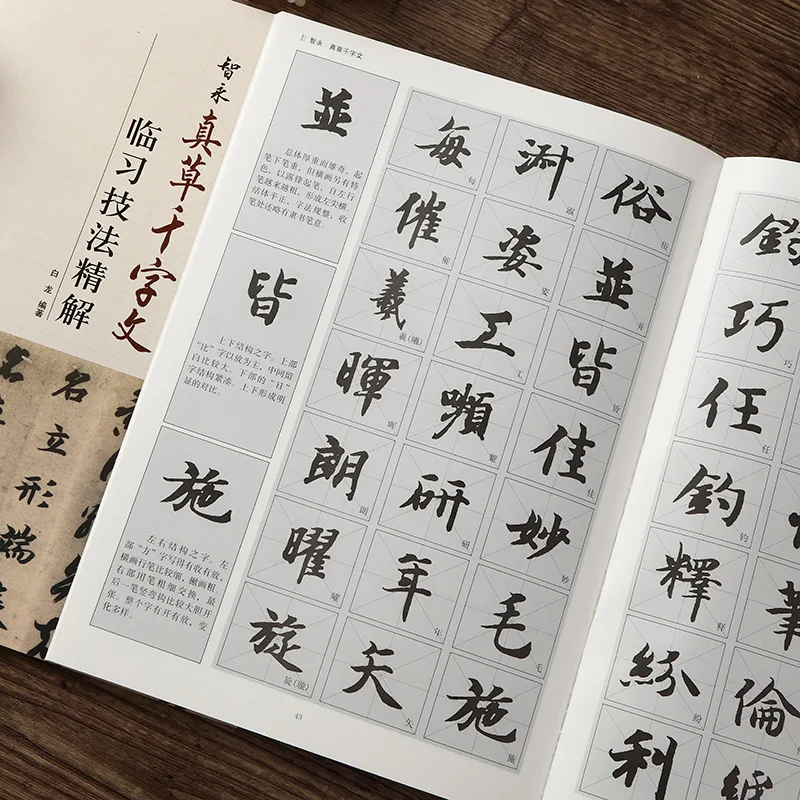 智永
真草千字文
临习技法精解
白龙 编著
名立形端
智永 真草千字文
並
总体厚重而雄奇,起
笔下笔重,但横画另有特
色,以露锋起笔,自左行
笔越来越粗,形成左尖横。
结体平正,字法规整,收
笔处还略有隶书笔意。
皆
上下结构之字。上部
“比”字以放为主,中间留
白比较大。下部的“日”
字结构紧凑。上下形成明
显的对比。
施
左右结构之字。左
部“方”字写得有收有放,
横画行笔比较细,撇画粗。
右部用笔粗细交换,最
后一笔竖弯钩比较大胆开
张。整个字有开有放,变
化多样。
俗 俗
並 并
皆 皆
佳 佳
妙 妙
毛 毛
施 施
淑 淑
姿 姿
工 工
嚬 颦
研 研
年 年
矢 矢
每 每
催 催
羲 羲(曦)
暉 晖
朗 朗
曜 曜
旋 旋(璇)
43
鈞
巧 巧
任 任
釣 钓
釋 释
紛 纷
利
筆
倫
紙